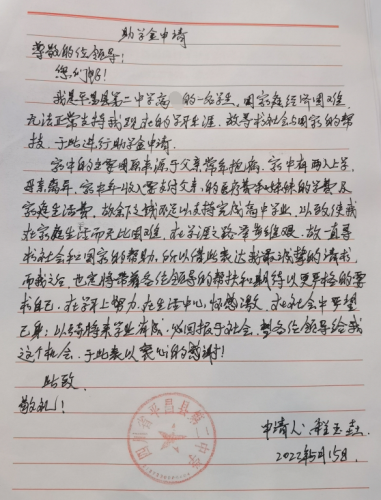 助学金申请
尊敬的各位领导:
您们好!
我是平昌县第二中学高一的一名学生,因家庭经济困难,
无法正常支持我现在的学习生涯,故寻求社会与国家的帮
扶,于此进行助学金申请.
家中的主要困难来源于父亲常年抱病,家中有两人上学,
母亲务农,家中年收入需支付父亲的医疗费和妹妹的学费及
家庭生活费,故余下之钱不足以支持完成高中学业,以致使我
在家庭生活而无比困难,在学课之路举步维艰,故一直寻
求社会和国家的帮助,所以借此表达我最诚挚的请求,
而我之后,也定将带着各位领导的帮扶和期待以更严格的要
求自己,在学习上努力,在生活中心怀感激,在社会中
己身,以待将来学业有成,必回报于社会,望各位领导给我
这个机会,于此表以衷心的感谢!
此致
敬礼!
四川省平昌县第二中学
申请人:程玉
2022年5月15日.